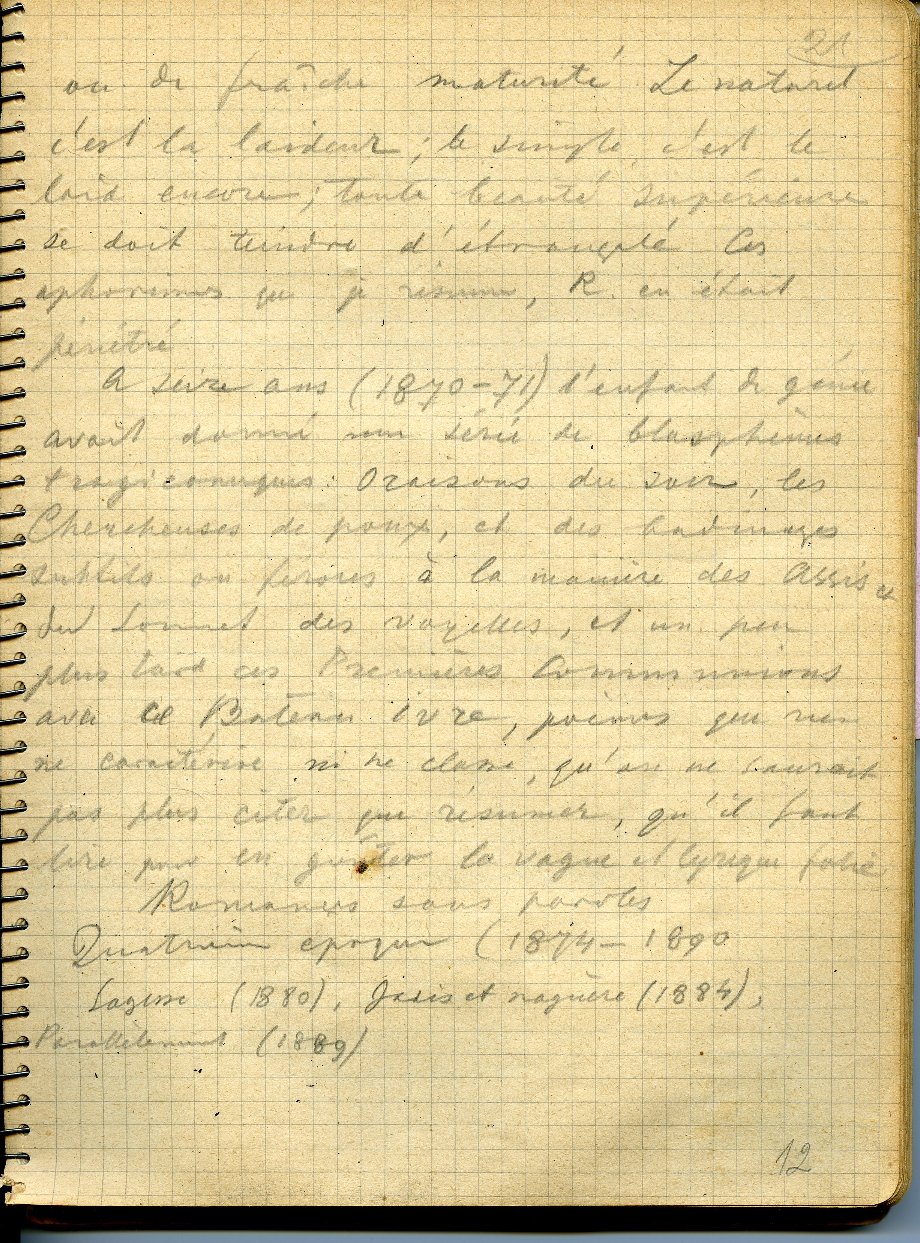 21
ou de fraîche maturité Le naturel
c'est la laideur; le simple, c'est le
laid encore; toute beauté supérieure
se doit teindre d'étrangeté. Ces
aphorismes que je résume, R. en était
pénétré
A seize ans (1870-71) l'enfant de génie
avait donné une série de blasphèmes
tragicomiques: Oraisons du soir, les
Chercheuses de poux, et des badinages
subtils ou féroces à la manière des Assis et
du Sonnet des voyelles, et un peu
plus tard ces Premières Communions
avec ce Bateau ivre, poèmes que rien
ne caractérise ni ne classe, qu'on ne saurait
pas plus citer que résumer, qu'il faut
lire pour en goûter la vague et lyrique folie
Romances sans paroles
Quatrième époque (1874-1890
Sagesse (1880), Jadis et naguère (1884),
Parallèlement (1889)
12